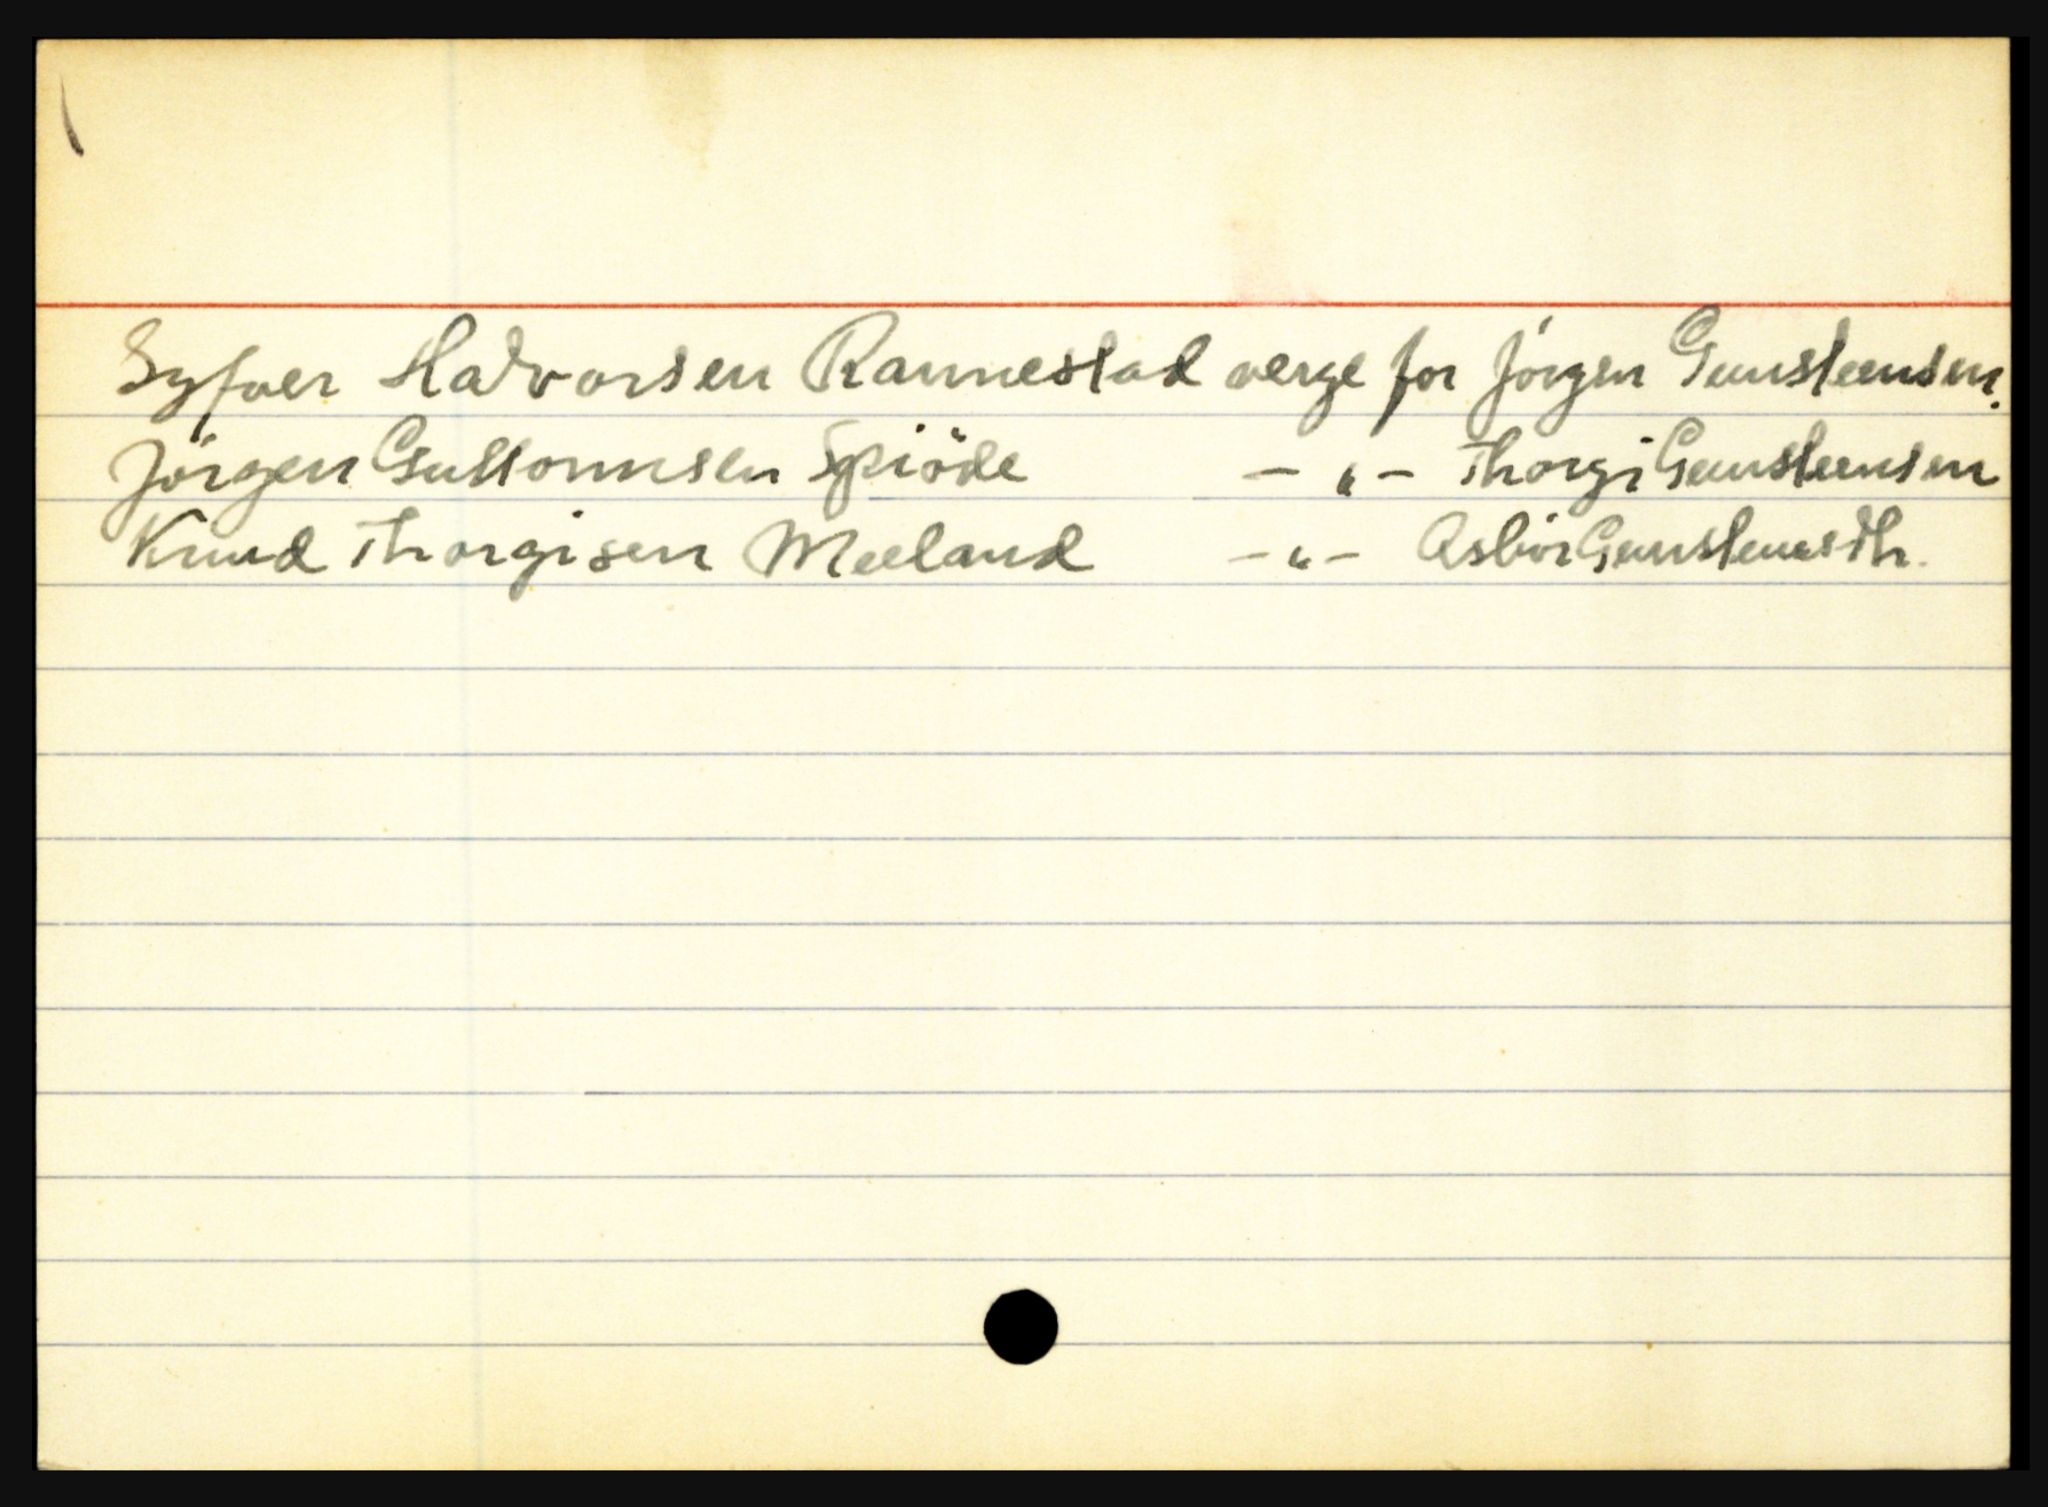 Syfver Halvorsen Rannestad verge for Jörgen Gunsteensen.
Jörgen Guttormsen Spiöde - " - Thorgi Gunsteensen
Knud Thorgisen Meeland - " - Asbör Gunstensdtr.